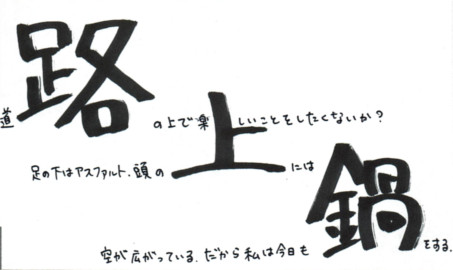 道路の上で楽しいことをしたくないか?
足の下はアスファルト、頭の上には
空が広がっている。だから私は今日も鍋をする。